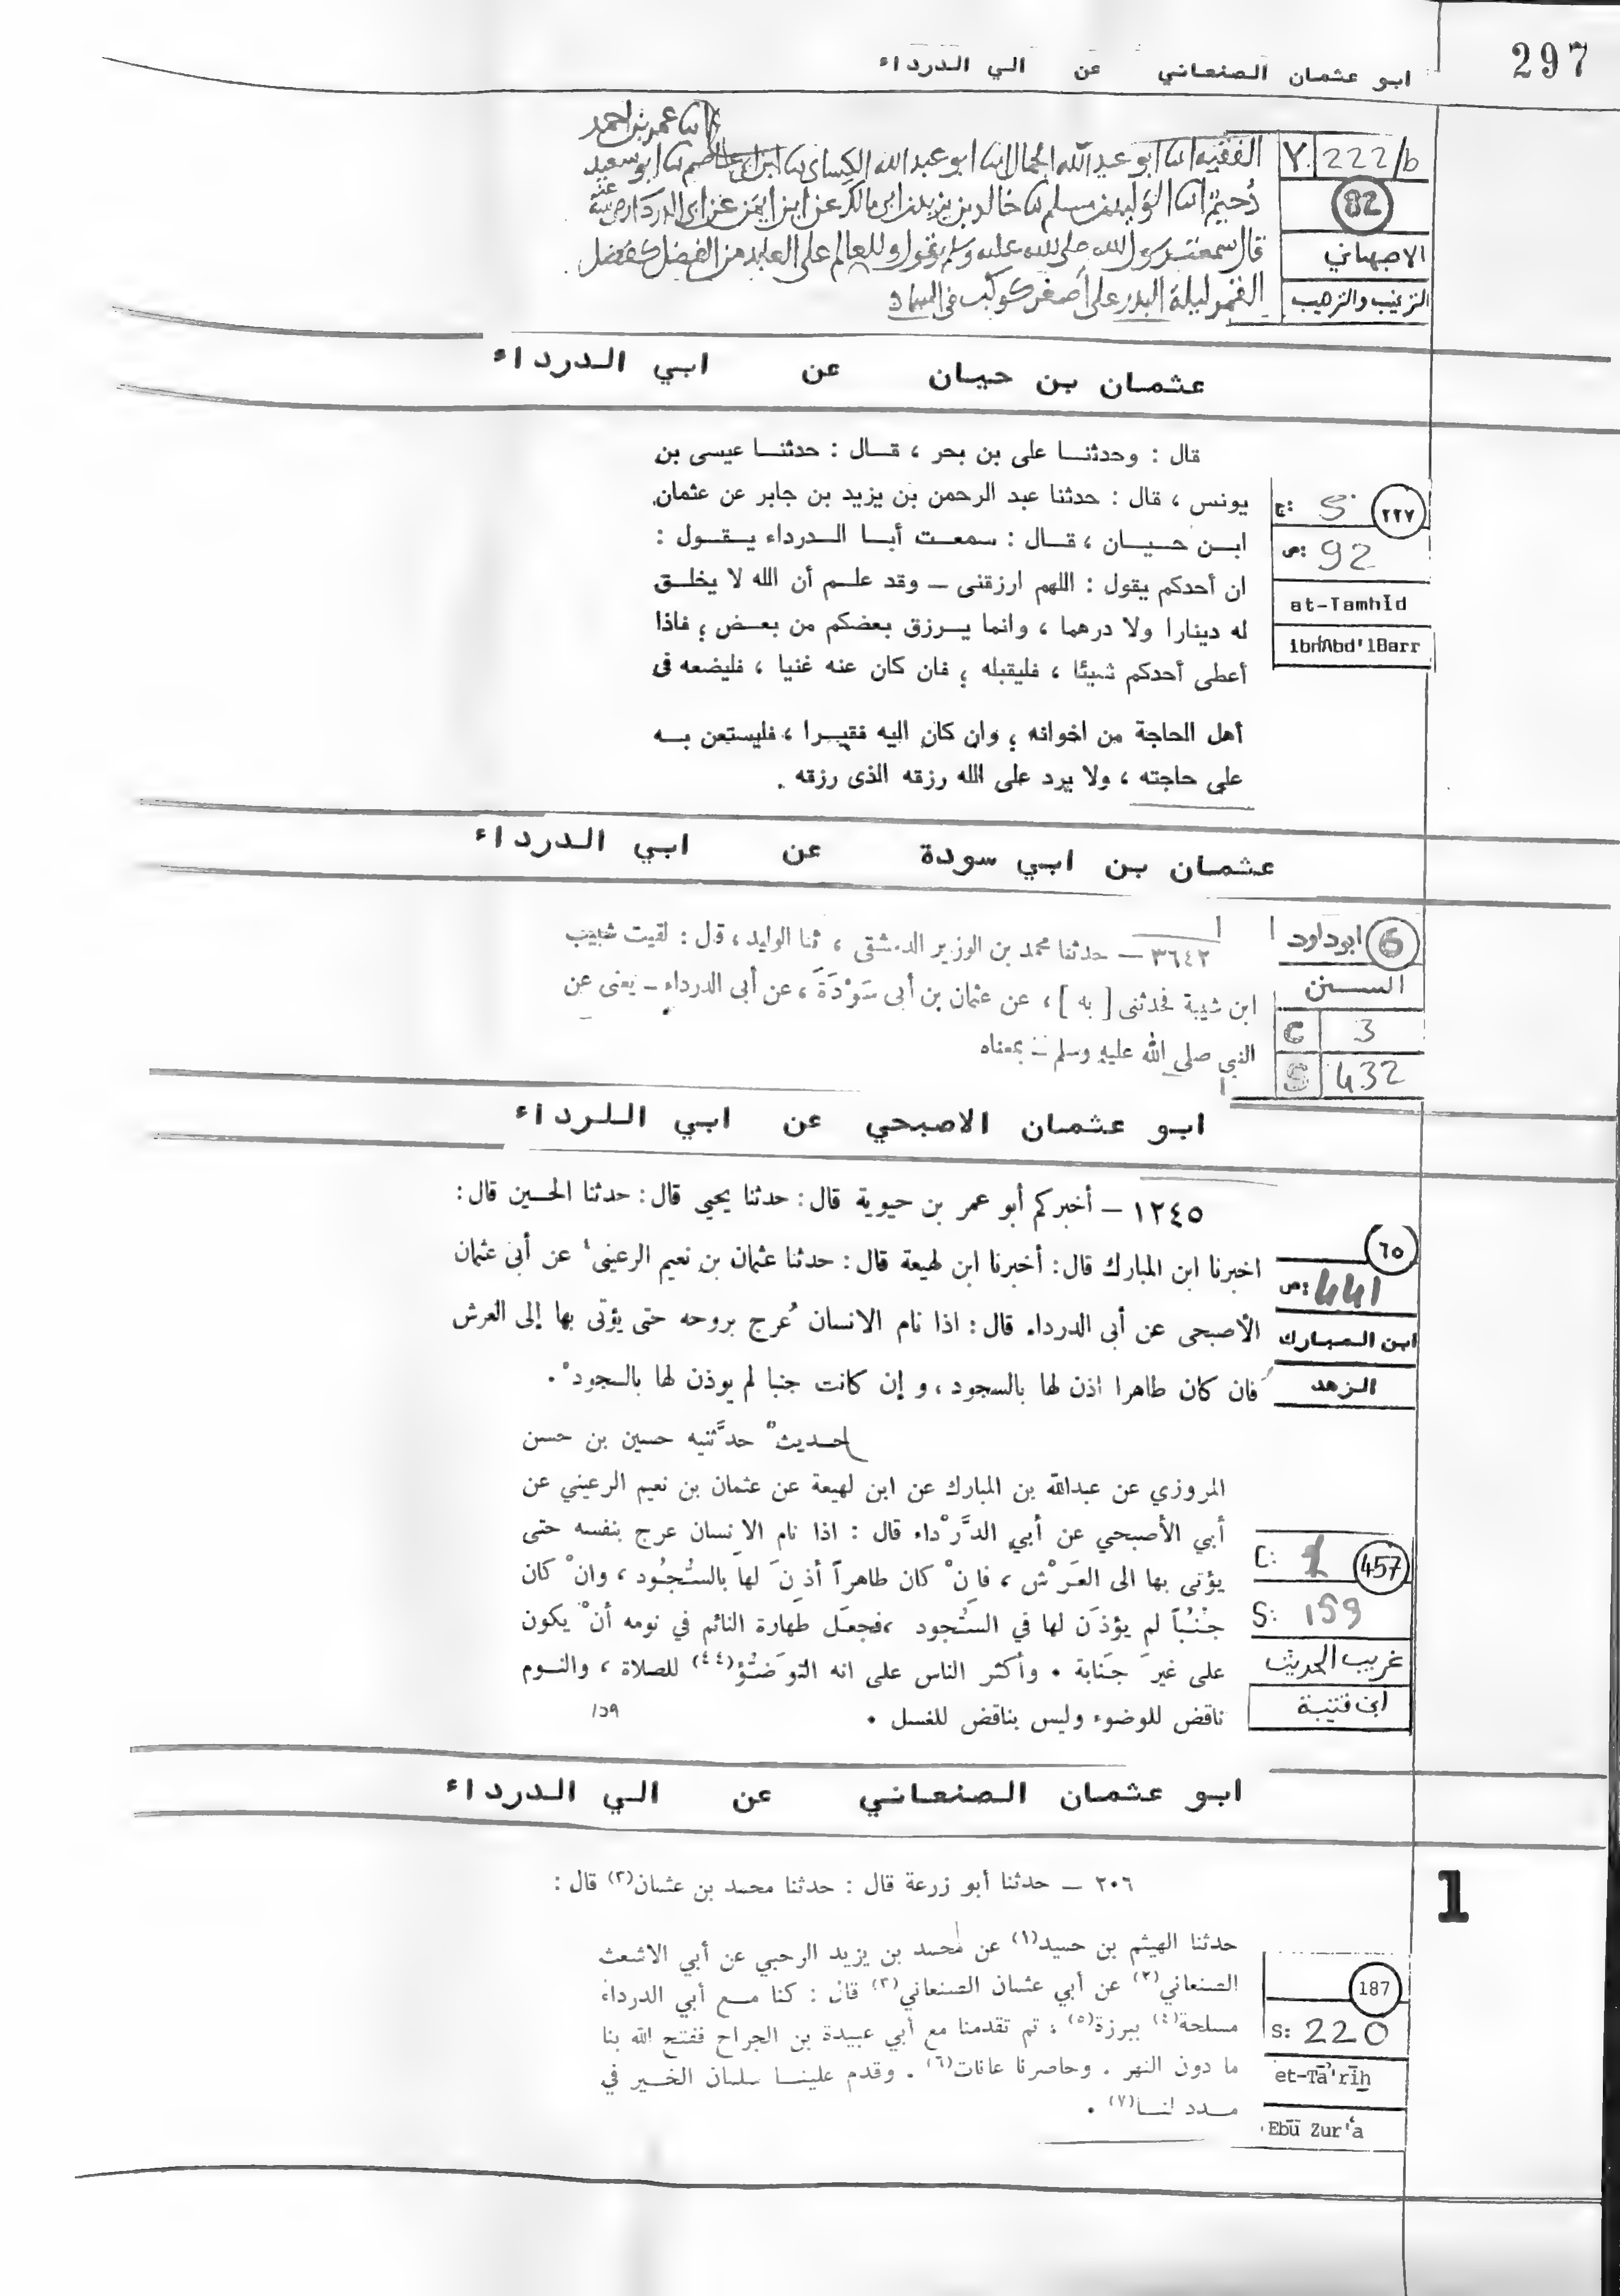 297
ابو عثمان الصنعاني عن الي الدرداء
انا عمر بن احمد
الفقيه انا ابو عبد الله الجمال انا ابو عبد الله الكسائي نا ابن ابي عاصم نا ابو سعيد
دُحيم نا الوليد بن مسلم نا خالد بن يزيد بن ابي مالك عن ابن ايمن عن ابي الدرداء رضي الله عنه
قال سمعت رسول الله صلى الله عليه وسلم يقول وللعالم على العابد من الفضل كفضل
القمر ليلة البدر على أصغر كوكب في السماء
Y. 222/b
82
الاصبهاني
الترغيب والترهيب
عثمان بن حيان عن ابي الدرداء
قال : وحدثنا على بن بحر ، قال : حدثنا عيسى بن
يونس ، قال : حدثنا عبد الرحمن بن يزيد بن جابر عن عثمان
ابن حيان ، قال : سمعت أبا الدرداء يقول :
ان أحدكم يقول : اللهم ارزقنى – وقد علم أن الله لا يخلق
له دينارا ولا درهما ، وانما يرزق بعضكم من بعض ؛ فاذا
أعطى أحدكم شيئا ، فليقبله ؛ فان كان عنه غنيا ، فليضعه فى
أهل الحاجة من اخوانه ؛ وان كان اليه فقيرا ، فليستعن به
على حاجته ، ولا يرد على الله رزقه الذى رزقه .
ج: 5
٢٢٧
ص: 92
at-Tamhīd
ibn Abd'lBarr
عثمان بن ابي سودة عن ابي الدرداء
٣٦٤٢ – حدثنا محمد بن الوزير الدمشقى ، ثنا الوليد ، قال : لقيت شبيب
ابن شيبة فحدثنى [ به ] ، عن عثمان بن أبى سَوْدَةَ ، عن أبى الدرداء – يعنى عن
النبى صلى الله عليه وسلم – بمعناه
6 ابوداود
السنن
C 3
S 432
ابو عثمان الاصبحي عن ابي اللرداء
١٢٤٥ – أخبركم أبو عمر بن حيوية قال: حدثنا يحيي قال: حدثنا الحسين قال:
اخبرنا ابن المبارك قال: أخبرنا ابن لهيعة قال: حدثنا عثمان بن نعيم الرعينى⁴ عن أبى عثمان
الأصبحى عن أبى الدرداء قال: اذا نام الانسان عُرج بروحه حتى يؤتى بها إلى العرش
فان كان طاهرا اذن لها بالسجود، و إن كانت جنبا لم يوذن لها بالسجود°.
٦٥
ص: 441
ابن المبارك
الزهد
الحديث حدَّثنيه حسين بن حسن
المروزي عن عبدالله بن المبارك عن ابن لهيعة عن عثمان بن نعيم الرعيني عن
أبي الأصبحي عن أبي الدَّرْداء قال : اذا نام الانسان عرج بنفسه حتى
يؤتى بها الى العَرْش ، فاِنْ كان طاهراً أذِنَ لها بالسُّجُود ، وانْ كان
جُنُباً لم يؤذَن لها في السُّجود ،فجعَل طهارة النائم في نومه أنْ يكون
على غيرَ جَنابة • وأكثر الناس على انه التوَضُّؤ(٤٤) للصلاة ، والنوم
ناقض للوضوء وليس بناقض للغسل •
١٥٩
C: 1
457
S: 159
غريب الحديث
ابن قتيبة
ابو عثمان الصنعاني عن الي الدرداء
٢٠٦ – حدثنا أبو زرعة قال : حدثنا محمد بن عثمان(٣) قال :
حدثنا الهيثم بن حميد(١) عن محمد بن يزيد الرحبي عن أبي الاشعث
الصنعاني(٢) عن أبي عثمان الصنعاني(٣) قال : كنا مع أبي الدرداء
مسلحة(٤) ببرزة(٥) ، ثم تقدمنا مع أبي عبيدة بن الجراح ففتح الله بنا
ما دون النهر . وحاصرنا عانات(٦) . وقدم علينا سلمان الخير في
مدد لنا(٧) .
1
187
S: 220
et-Tā'rīḫ
Ebū Zur'a